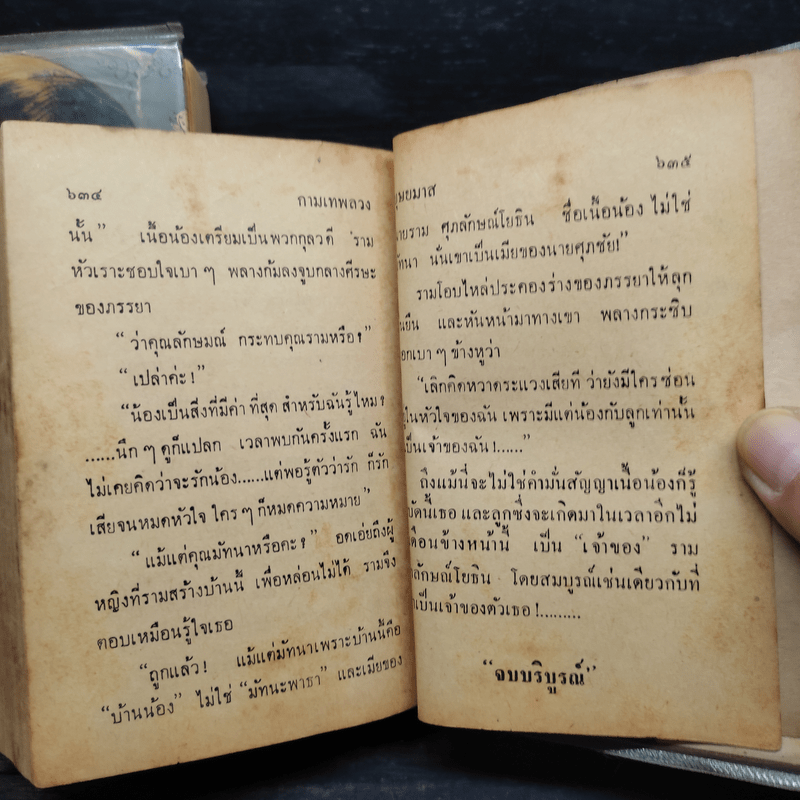 ๖๓๔ กามเทพลวง
นั้น” เนื้อน้องเตรียมเป็นพวกกุลวดี ‘ราม
หัวเราะชอบใจเบา ๆ พลางก้มลงจูบกลางศีรษะ
ของภรรยา
“ว่าคุณลักษมณ์ กระทบคุณรามหรือ?”
“เปล่าค่ะ!”
“น้องเป็นสิ่งที่มีค่า ที่สุด สำหรับฉันรู้ไหม?
......นึก ๆ ดูก็แปลก เวลาพบกันครั้งแรก ฉัน
ไม่เคยคิดว่าจะรักน้อง......แต่พอรู้ตัวว่ารัก ก็รัก
เสียจนหมดหัวใจ ใคร ๆ ก็หมดความหมาย”
“แม้แต่คุณมัทนาหรือคะ?” อดเอ่ยถึงผู้
หญิงที่รามสร้างบ้านนี้ เพื่อหล่อนไม่ได้ รามจึง
ตอบเหมือนรู้ใจเธอ
“ถูกแล้ว! แม้แต่มัทนาเพราะบ้านนี้คือ
“บ้านน้อง” ไม่ใช่ “มัทนะพาธา” และเมียของ
๖๓๕
บุษยมาส
นายราม ศุภลักษณ์โยธิน ชื่อเนื้อน้อง ไม่ใช่
มัทนา นั่นเขาเป็นเมียของนายศุภชัย!”
รามโอบไหล่ประคองร่างของภรรยาให้ลุก
ขึ้นยืน และหันหน้ามาทางเขา พลางกระซิบ
บอกเบา ๆ ข้างหูว่า
“เลิกคิดหวาดระแวงเสียที ว่ายังมีใครซ่อน
อยู่ในหัวใจของฉัน เพราะมีแต่น้องกับลูกเท่านั้น
เป็นเจ้าของฉัน!......”
ถึงแม้นี่จะไม่ใช่คำมั่นสัญญาเนื้อน้องก็รู้
บัดนี้เธอ และลูกซึ่งจะเกิดมาในเวลาอีกไม่
เดือนข้างหน้านี้ เป็น “เจ้าของ” ราม
ศุภลักษณ์โยธิน โดยสมบูรณ์เช่นเดียวกับที่
เป็นเจ้าของตัวเธอ!.........
“จบบริบูรณ์”